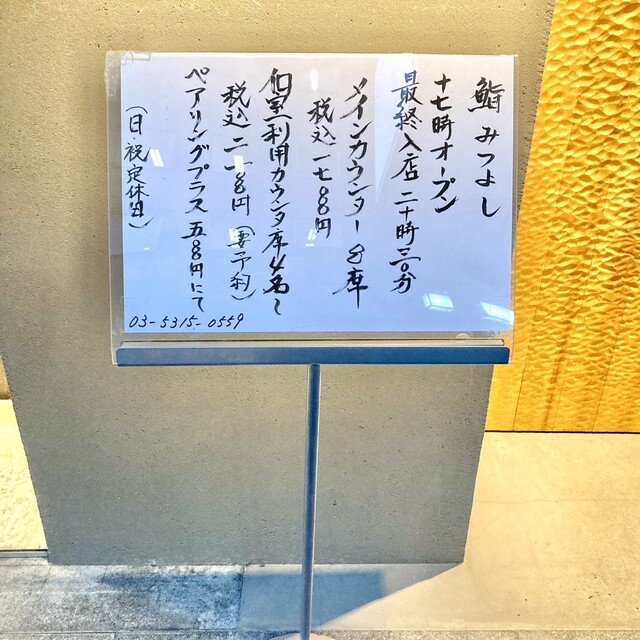 鮨 みつよし
十七時オープン
最終入店 二十時三〇分
メインカウンター 8席
税込一七〇〇〇円
個室利用カウンタ席4名〜
税込二一〇〇〇円 (要予約)
ペアリングプラス 五〇〇〇円にて
(日・祝定休日)
03-5315-0559